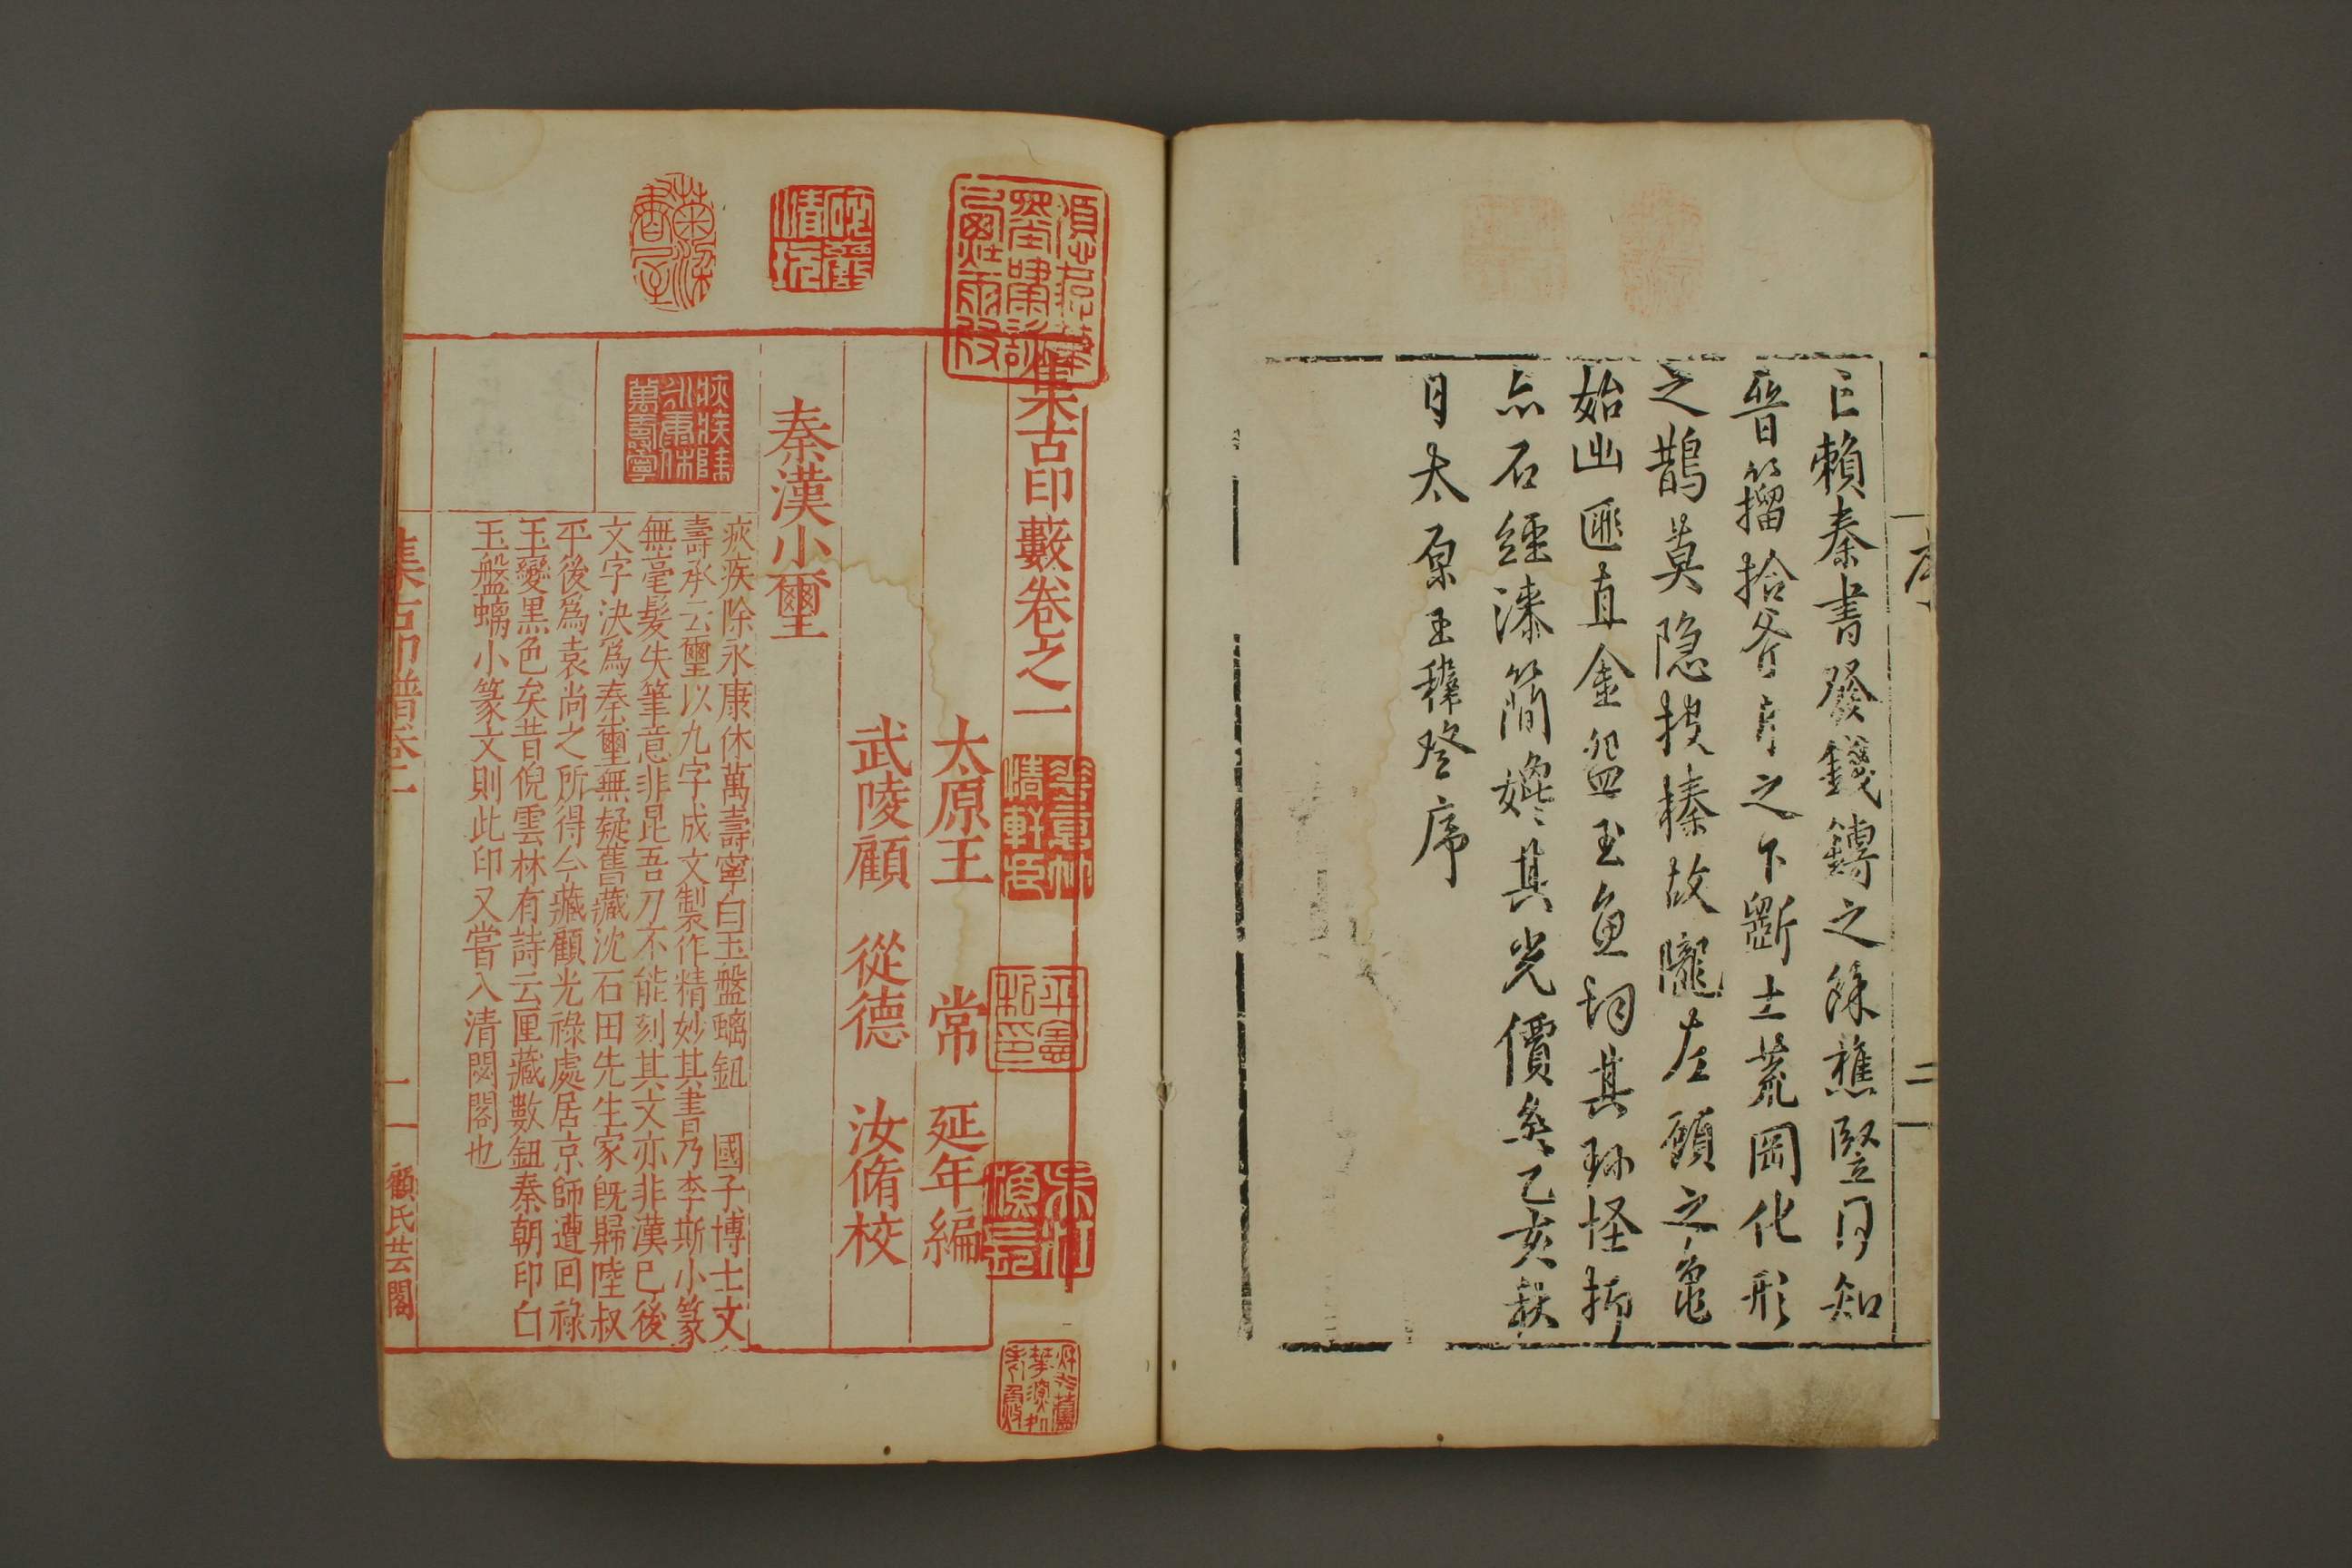 序
二
已賴秦書發錢鎛之餘樵豎同知
晉籀拾斧斤之下斷土荒岡化形
之鵲莫隐披榛故隴左顧之龜
始出匪直金盌玉魚詞其珎怪抑
亦石經漆簡媲其光價矣乙亥秋
日太原王穉登序
集古印藪卷之一
太原王常延年編
武陵顧從德汝脩校
秦漢小璽
疢疾除永康休萬壽寧白玉盤螭鈕 國子博士文
壽承云璽以九字成文製作精妙其書乃李斯小篆
無毫髮失筆意非昆吾刀不能刻其文亦非漢已後
文字決為秦璽無疑舊藏沈石田先生家既歸陸叔
平後為袁尚之所得今藏顧光祿處居京師遭回祿
玉變黑色矣昔倪雲林有詩云匣藏數鈕秦朝印白
玉盤螭小篆文則此印又嘗入清閟閣也
集古印譜卷一
一
顧氏芸閣